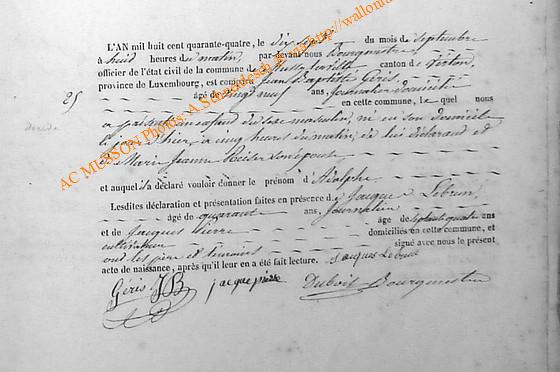 L'AN mil huit cent quarante-quatre, le dix sept du mois de septembre
à huit heures du matin, par-devant nous Bourgmestre
officier de l'état civil de la commune de Mussy-la-ville canton de Virton,
province de Luxembourg, est comparu Jean Baptiste Géris
25 âgé de vingt neuf ans, journalier domicilié
en cette commune, le quel nous
décédé a présenté un enfant du sexe masculin, né en son domicile
le jour d'hier, à cinq heures du matin, de lui déclarant et
de Marie Jeanne son épouse
et auquel il a déclaré vouloir donner le prénom d'Adolphe
Lesdites déclaration et présentation faites en présence de Jacque Lebrun
âgé de quarante ans, Journalier
et de Jacques Pierre âgé de septante quatre ans
cultivateur domiciliés en cette commune, et
ont les père et témoins signé avec nous le présent
acte de naissance, après qu'il leur en a été fait lecture. Jacques Lebrun
Géris JB jacque pierre Dubois Bourgmestre
AC MUSSON Photos: A. Schaedesch Roma http://wallonia